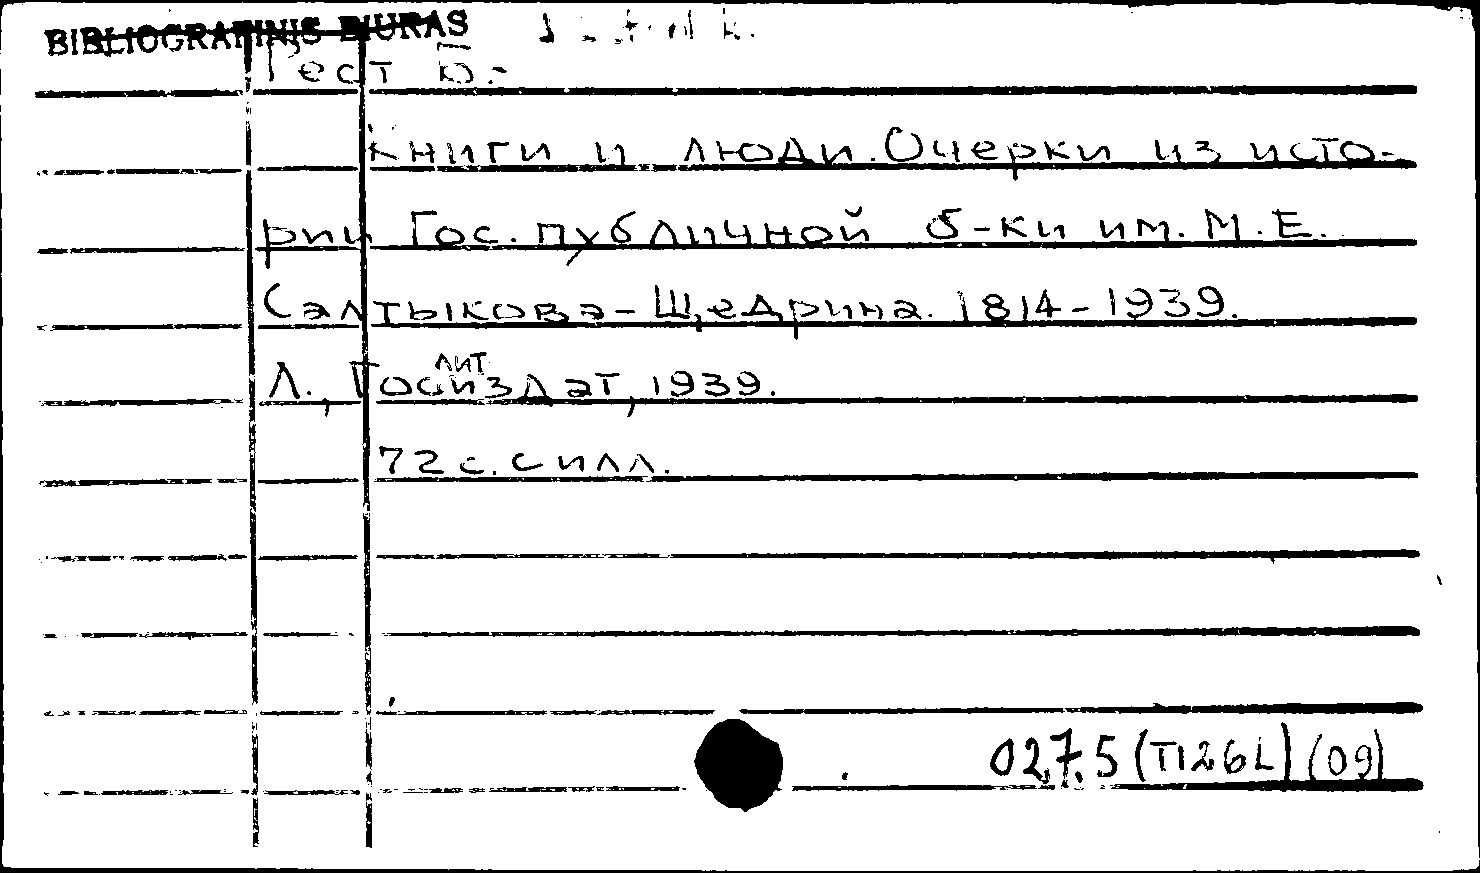 BIBLIOGRAFINIS BIURAS
Гест Б.-
Книги и люди. Очерки из исто-
рии Гос. публичной б-ки им. М.Е.
Салтыкова-Щедрина. 1814-1939.
Л., Гослитиздат, 1939.
72 с. с илл.
027.5 (T126L) (09)